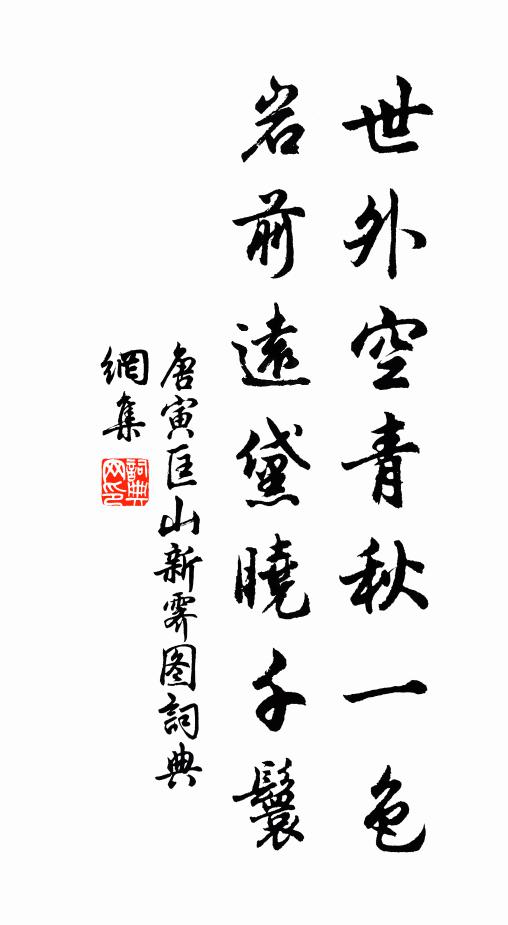 世外空青秋一色
岩前遠黛曉千鬟
唐寅匡山新霽图詞典
網集
詞典
网印